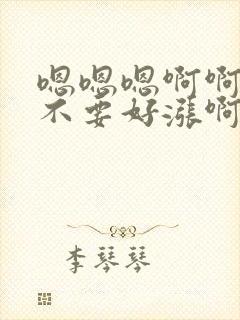 嗯嗯嗯啊啊
不要好涨啊
李琴琴